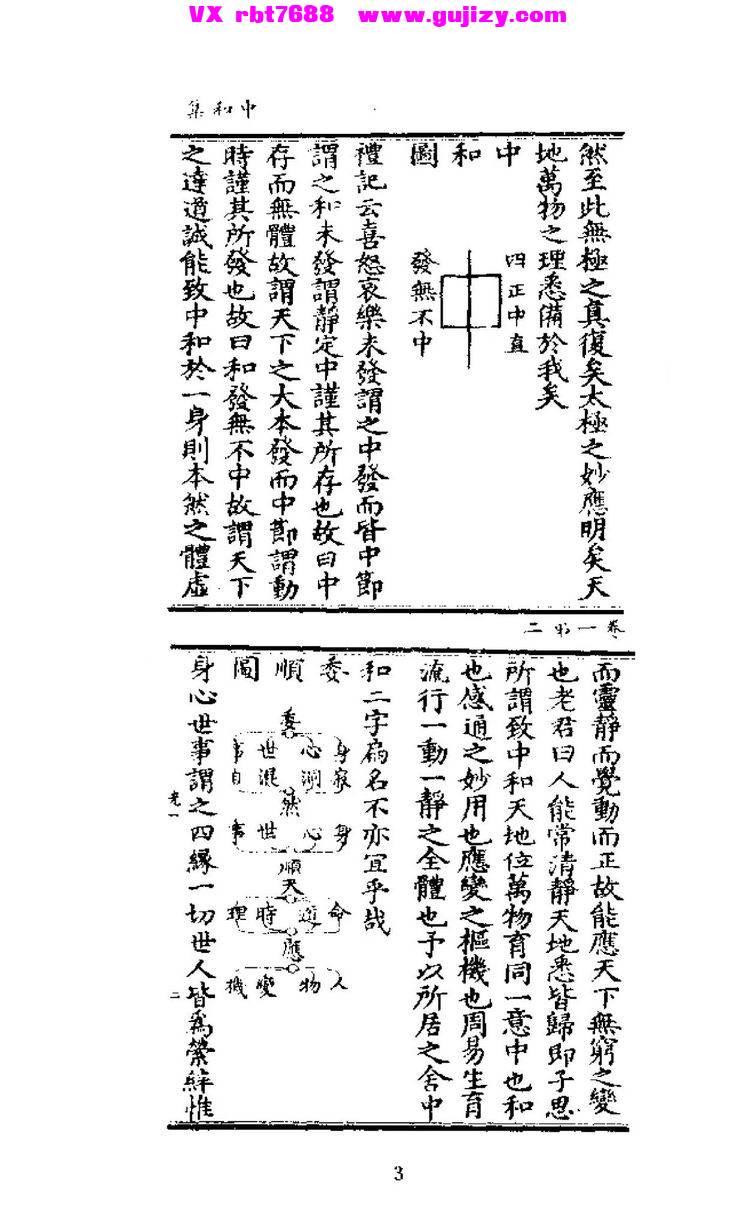 VX rbt7688 www.gujizy.com
中和集
然至此無極之真復矣太極之妙應明矣天
地萬物之理悉備於我矣
中和圖
四正中直
發無不中
禮記云喜怒哀樂未發謂之中發而皆中節
謂之和未發謂靜定中謹其所存也故曰中
存而無體故謂天下之大本發而中節謂動
時謹其所發也故曰和發無不中故謂天下
之達道誠能致中和於一身則本然之體虛
卷一第二
而靈靜而覺動而正故能應天下無窮之變
也老君曰人能常清靜天地悉皆歸即子思
所謂致中和天地位萬物育同一意中也和
也感通之妙用也應變之樞機也周易生育
流行一動一靜之全體也予以所居之舍中
和二字扁名不亦宜乎哉
委順圖
委
身心世事
寂洞混自
然
身心世事
順天
命道時理
應
人物變機
身心世事謂之四緣一切世人皆為縈絆惟
光一
二
3